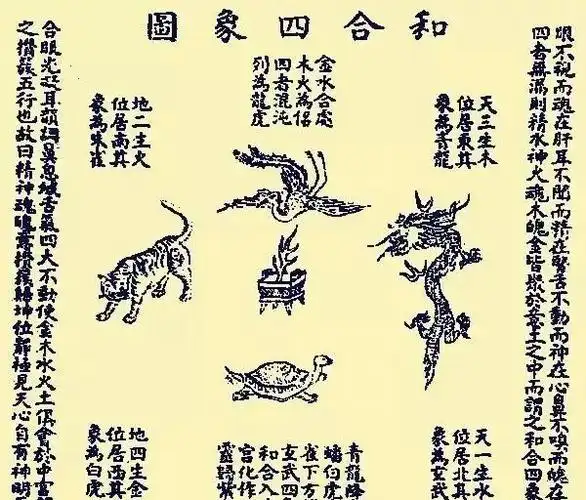 和合四象圖
眼不視而魂在肝耳不聞而精在腎舌不動而神在心鼻不嗅而魄在
四者無漏則精水神火魂木魄金皆聚於意土之中而謂之和合四象
天三生木
位居東其
象為青龍
金水合處
木火為侶
四者混沌
列為龍虎
地二生火
位居南其
象為朱雀
天一生水
位居北其
象為玄武
青龍降
蟠白虎
雀下方
玄武四
和合入
宮化作
靈歸紫
地四生金
位居西其
象為白虎
合眼光凝耳韻調鼻息緘舌氣四大不動使金木水火土俱會於中宮
之攢簇五行也故曰精神魂魄意攢簇歸坤位靜極見天心自有神明